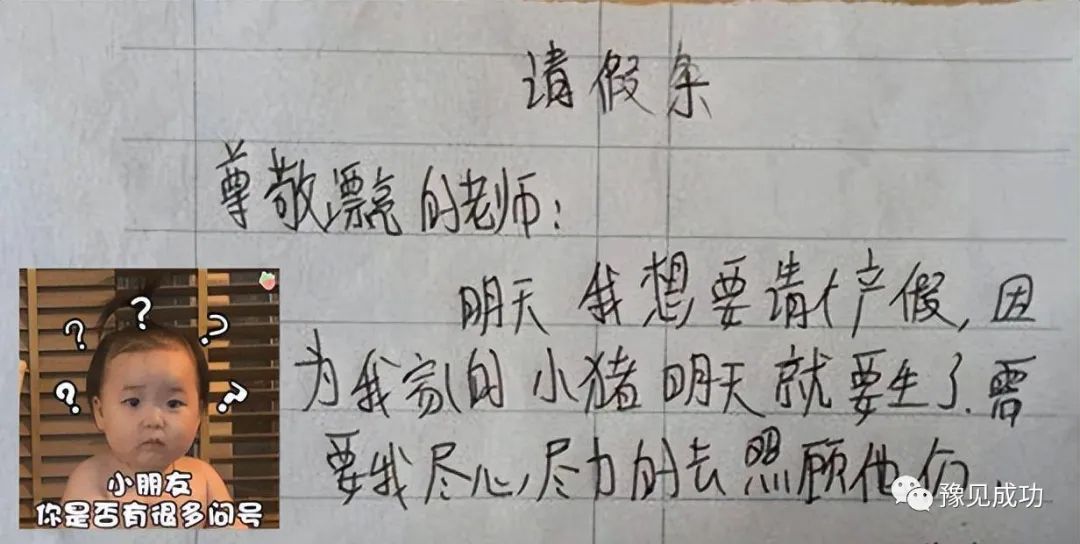 请假条
尊敬漂亮的老师：
明天我想要请个产假，因
为我家的小猪明天就要生了.需
要我尽心尽力的去照顾他们.
? ? ? ? ?
小朋友
你是否有很多问号
豫见成功